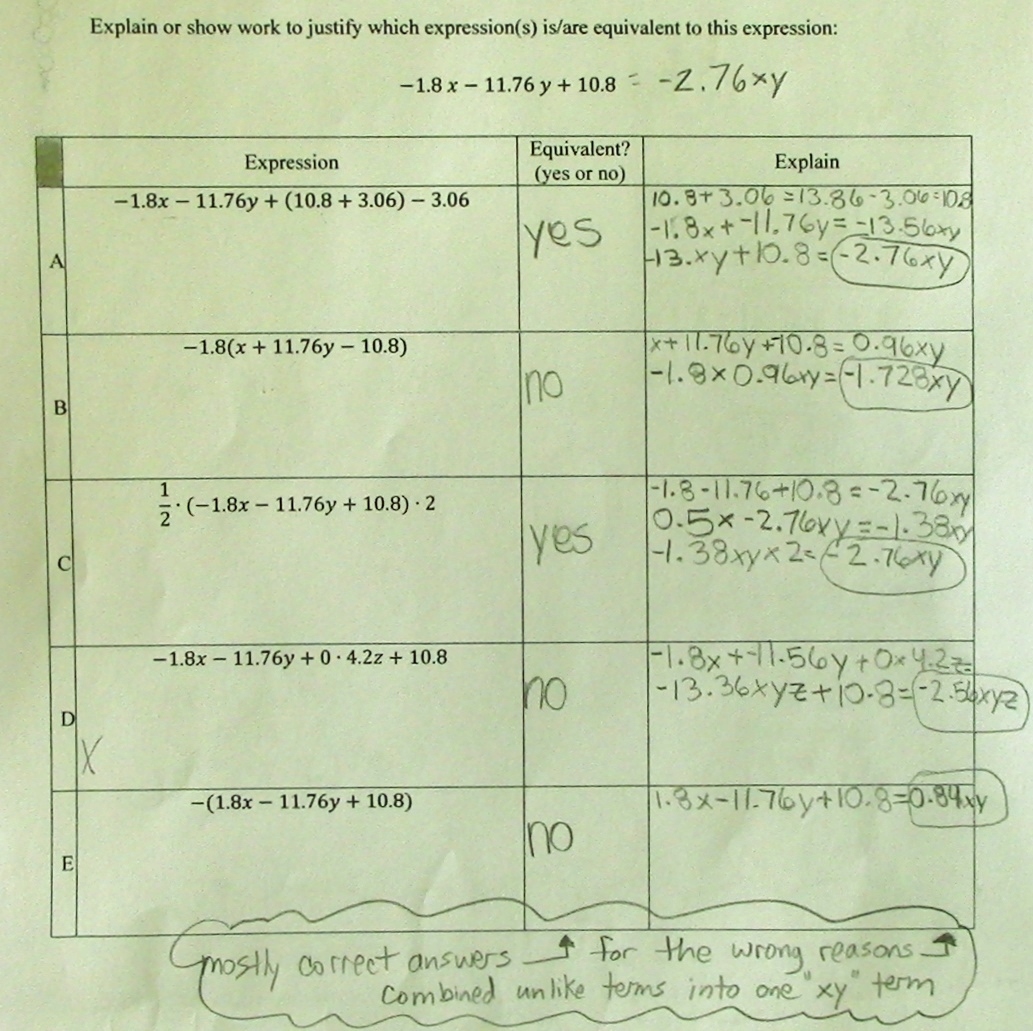 Explain or show work to justify which expression(s) is/are equivalent to this expression:
−1.8 x − 11.76 y + 10.8 = -2.76xy
Expression Equivalent? (yes or no) Explain
A
−1.8x − 11.76y + (10.8 + 3.06) − 3.06
yes
10.8+3.06=13.86-3.06=10.8
-1.8x+-11.76y=-13.56xy
-13.xy+10.8=-2.76xy
B
−1.8(x + 11.76y − 10.8)
no
x+11.76y+-10.8=0.96xy
-1.8×0.96xy=-1.728xy
C
1/2 · (−1.8x − 11.76y + 10.8) · 2
yes
-1.8-11.76+10.8=-2.76xy
0.5×-2.76xy=-1.38xy
-1.38xy×2=-2.76xy
D
X
−1.8x − 11.76y + 0 · 4.2z + 10.8
no
-1.8x+-11.56y+0×4.2z=
-13.36xyz+10.8=-2.56xyz
E
−(1.8x − 11.76y + 10.8)
no
1.8x-11.76y+10.8=0.84xy
mostly correct answers ↑ for the wrong reasons ↑
combined unlike terms into one "xy" term